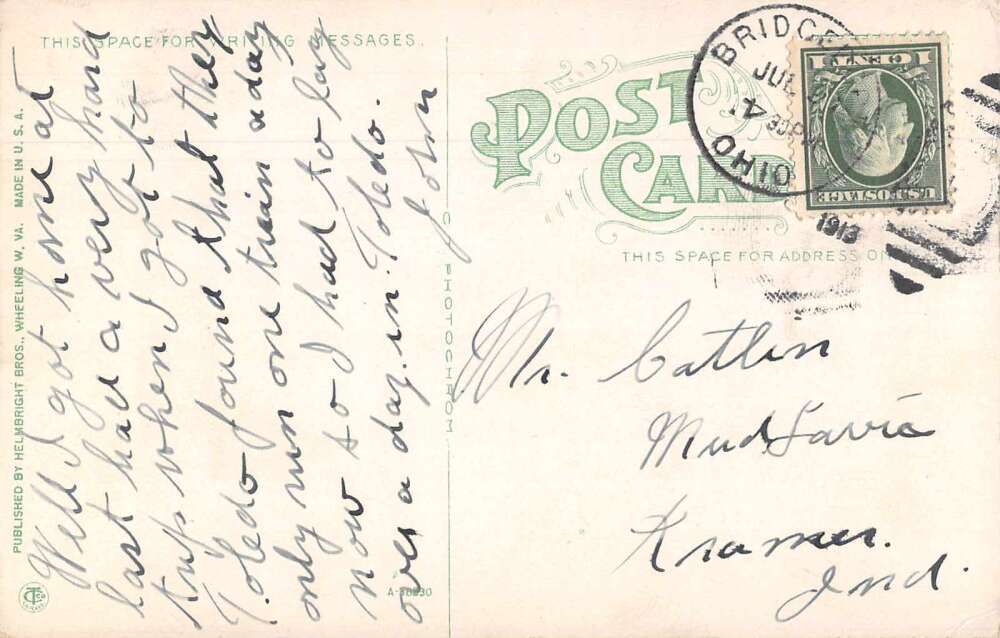 THIS SPACE FOR WRITING MESSAGES.
POST
CARD
THIS SPACE FOR ADDRESS ON
BRIDGE
OHIO
JUL
4
1913
1 CENT 1
U.S. POSTAGE
Well I got home at
last had a very hard
trip when I got to
Toledo found that they
only run one train a day
now so I had to lay
over a day in Toledo.
John
Mr. Catlin
Mud Lavia
Kramer.
Ind.
PUBLISHED BY HELMBRIGHT BROS., WHEELING W. VA. MADE IN U. S. A.
A-38230